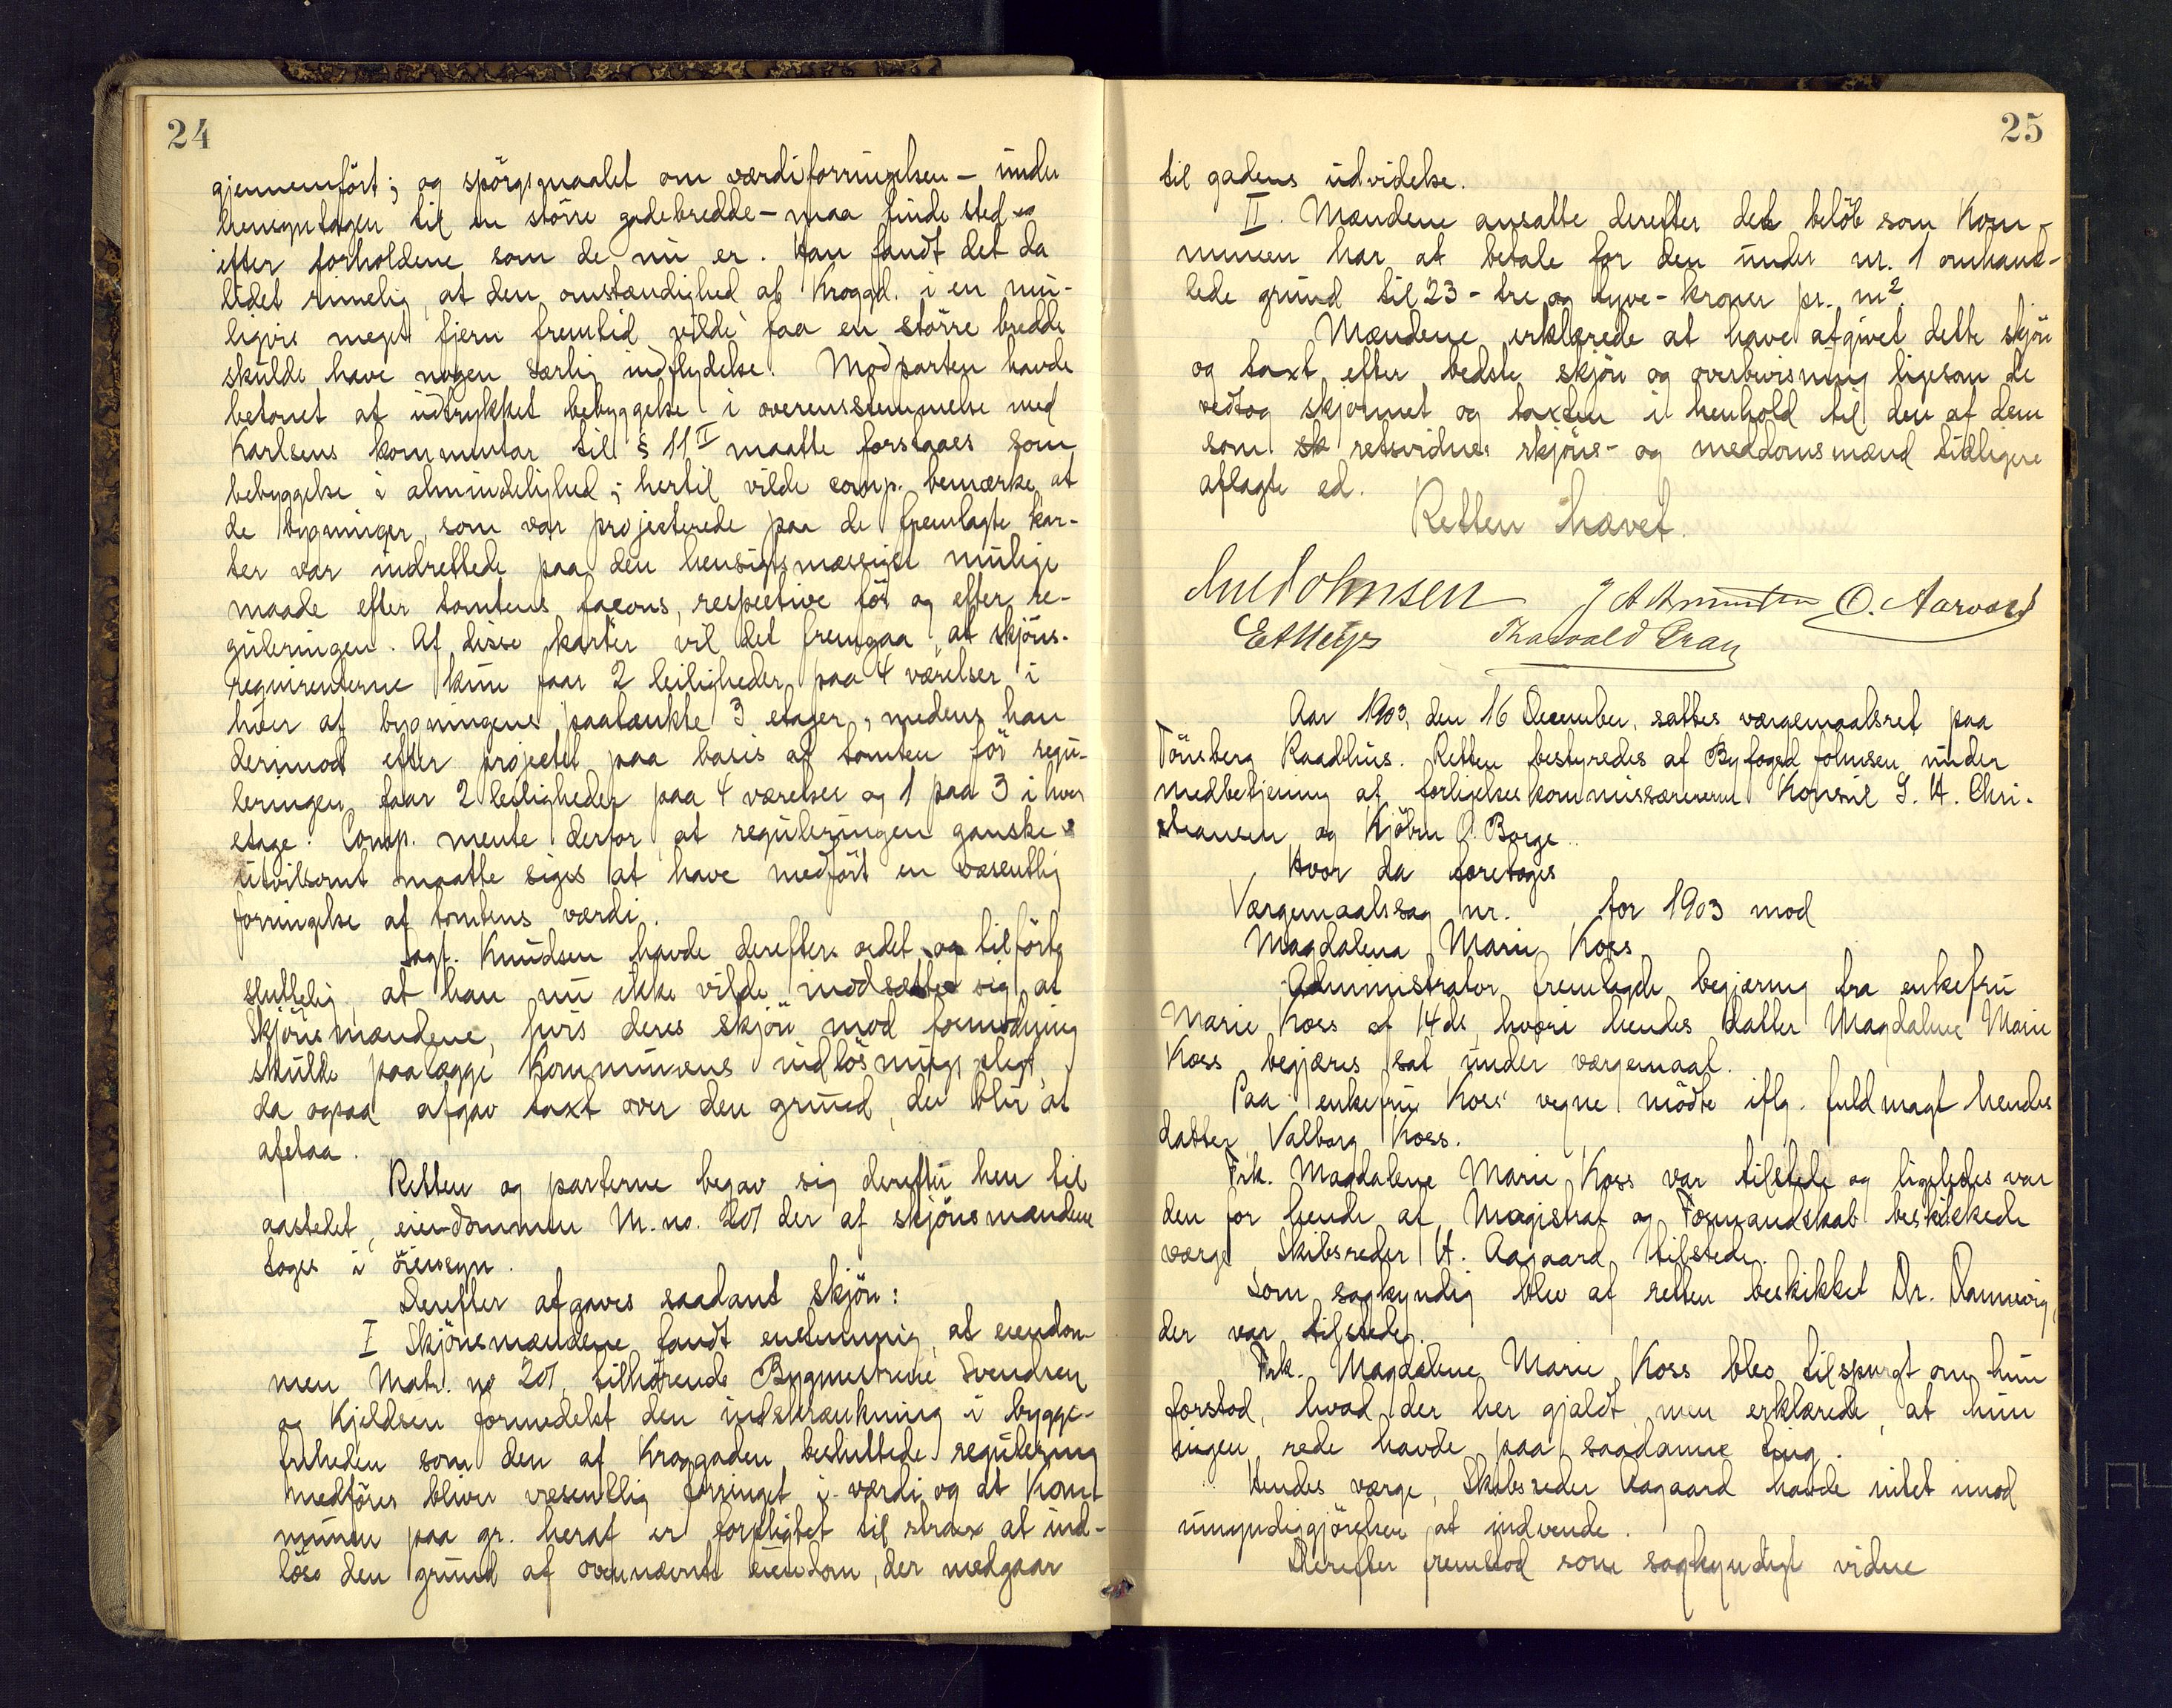 24
gjennemført; og spörgsmaalet om værdiforringelsen - under
hensyntagen til en större gadebredde - maa finde sted
efter forholdene som de nu er. Han fandt det da
lidet rimelig, at den omstændighed at Kroggd. i en mu-
ligvis meget fjern fremtid vilde faa en större bredde
skulde have nogen særlig indflydelse. Modparten havde
betonet at udtrykket bebyggelse i overensstemmelse med
Karlsens kommentar til § 11 I maatte forstaaes som
bebyggelse i almindelighed; hertil vilde comp. bemærke at
de bygninger, som var projecterede paa de fremlagte kar-
ter var indrettede paa den hensigtsmæssigst mulige
maade efter tomtens facons, respective för og efter re-
guleringen. Af disse karter vil det fremgaa, at skjöns-
reqvirenterne kun faar 2 leiligheder paa 4 værelser i
hver af bygningens paatænkte 3 etager, medens han
derimod efter projectet paa basis af tomten för regu-
leringen faar 2 leiligheder paa 4 værelser og 1 paa 3 i hver
etage. Comp. mente derfor, at reguleringen ganske
utvilsomt maatte siges at have medfört en væsentlig
forringelse af tomtens værdi.
Sagf. Knudsen havde derefter ordet og tilförte
sluttelig, at han nu ikke vilde modsætte sig at
Skjönsmændene, hvis deres skjön mod formodning
skulde paalægge Kommunens indlösningspligt,
da ogsaa afgav taxt over den grund, der blir at
afstaa.
Retten og parterne begav sig derefter hen til
aastedet, eiendommen M. no. 207 der af skjönsmændene
toges i öiensyn.
Derefter afgaves saadant skjön:
I Skjönsmændene fandt enstemmig, at eiendom-
men Matr. no 207, tilhörende Bygmestrene Svendsen
og Kjeldsen formedelst den indskrænkning i bygge-
friheden som den af Kroggaden besluttede regulering
medförer bliver væsentlig forringet i værdi og at Kom-
munen paa gr. heraf er forpligtet til strax at ind-
löse den grund af ovennævnte eiendom, der medgaar
25
til gadens udvidelse.
II. Mændene ansatte derefter det belöb som Kom-
munen har at betale for den under nr. 1 omhand-
lede grund til 23 - tre og tyve - kroner pr. m²
Mændene erklærede at have afgivet dette skjön
og taxt efter bedste skjön og overbevisning ligesom de
vedtog skjønnet og taxten i henhold til den af dem
som retsvidner skjöns- og meddomsmænd tidligere
aflagte ed.
Retten hævet.
Johnsen J A O. Aarvold
Thorvald
Aar 1903, den 16 December, sattes værgemaalsret paa
Tönsberg Raadhus. Retten bestyredes af Byfoged Johnsen under
medbetjening af forligelseskommissærerne Konsul S. H. Chri-
stiansen og Kjöbm O. Borge.
Hvor da foretoges
Værgemaalssag nr. for 1903 mod
Magdalena Marie Koss
Administrator fremlagde begjæring fra enkefru
Marie Koss af 14ds, hvori hendes datter Magdalene Marie
Koss begjæres sat under værgemaal.
Paa enkefru Koss' vegne mödte iflg. fuldmagt hendes
datter, Valborg Koss.
Frk. Magdalene Marie Koss var tilstede og ligeledes var
den for hende af Magistrat og Formandskab beskikkede
værge, Skibsreder H. Aagaard tilstede.
Som sagkyndig blev af retten beskikket Dr. Dannevig,
der var tilstede.
Frk. Magdalene Marie Koss blev tilspurgt om hun
forstod, hvad der her gjaldt, men erklærede, at hun
ingen rede havde paa saadanne ting.
Hendes værge, Skibsreder Aagaard havde intet imod
umyndiggjörelsen at indvende.
Derefter fremstod som sagkyndigt vidne